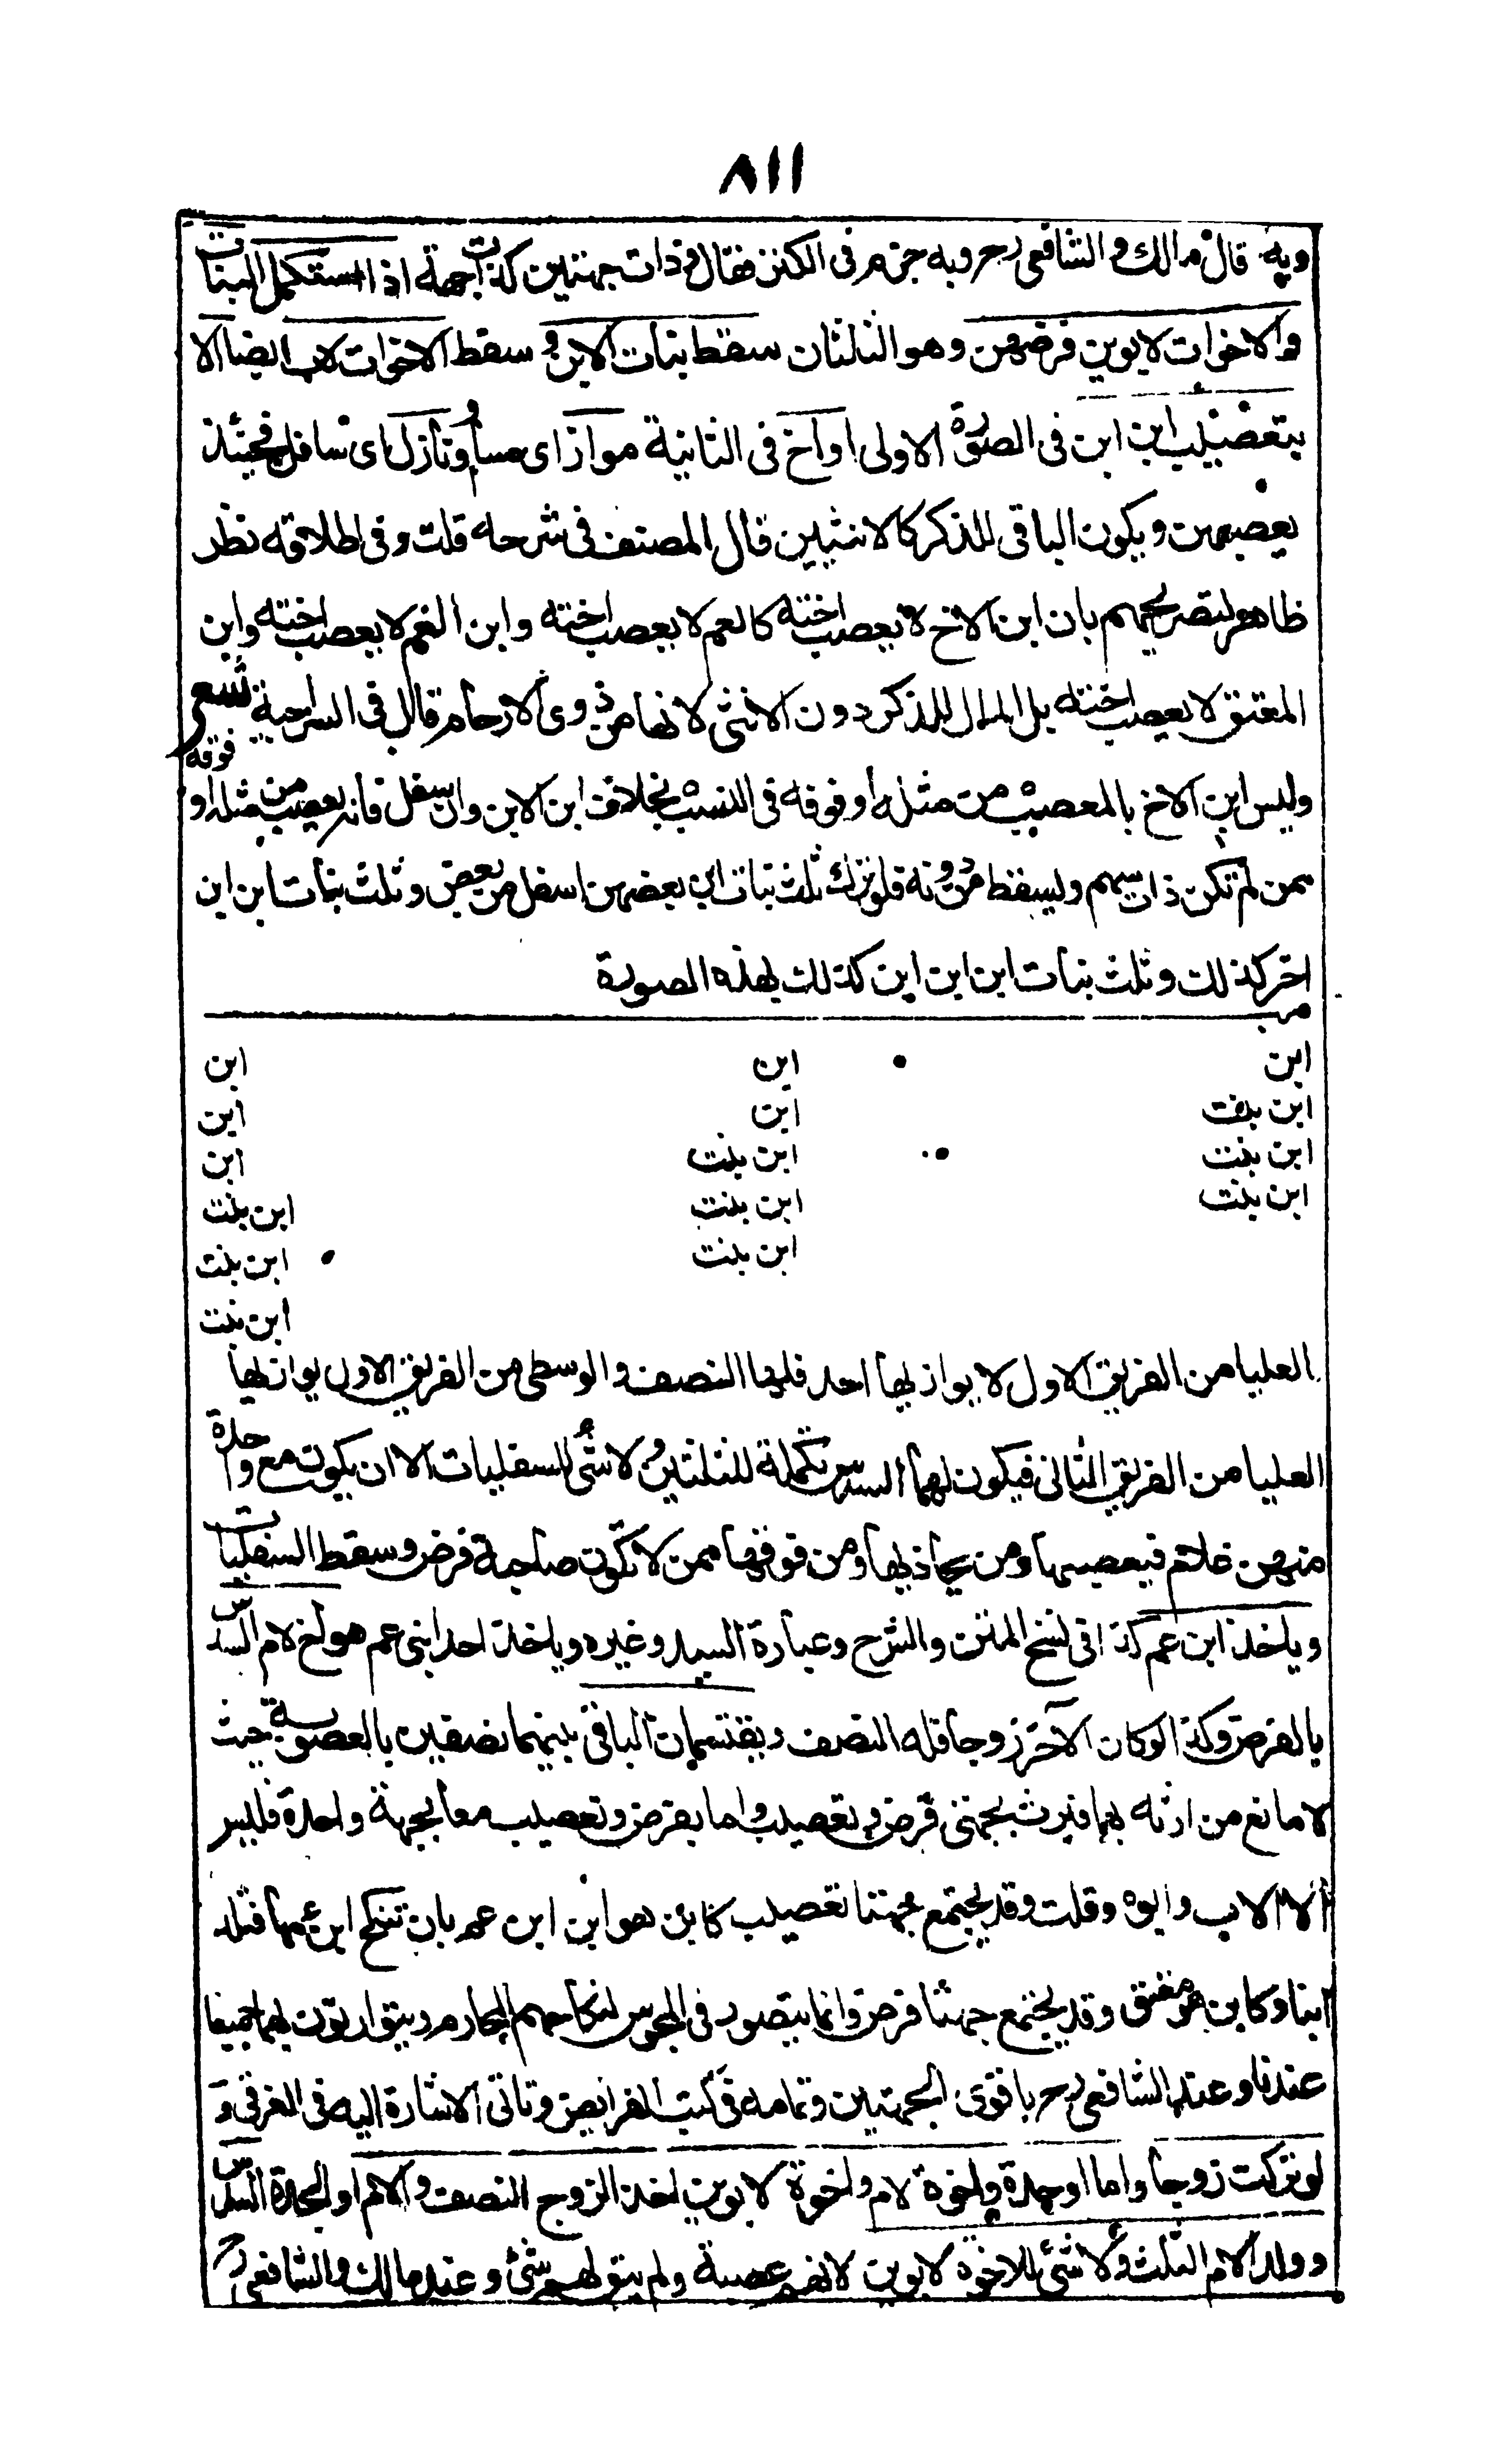 ٨١١
وبه قال مالك والشافعي رح وبه جزم في الكنز فقال وذات جهتين كذات جهة اذا استكمل البنات
والاخوات لابوين فرضهن وهو الثلثان سقط بنات الابن و سقط الاخوات لاب ايضا الا
بتعصيب ابن ابن في الصورة الاولى او اخ في الثانية مواز اى مساو و نازل اى سافل فحينئذ
يعصبهن ويكون الباقى للذكر كالانثيين قال المصنف فى شرحه قلت وفى اطلاقه نظر
ظاهر لتصريحهم بان ابن الاخ لا يعصب اخته كالعم لا يعصب اخته وابن العم لا يعصب اخته وابن
المعتق لا يعصب اخته بل المال للذكر دون الانثى لانها من ذوى الارحام قال فى السراجية شعر
وليس ابن الاخ بالمعصب من مثله او فوقه فى النسب بخلاف ابن الابن وان سفل فانه يعصب من مثله او فوقه
ممن لم تكن ذات سهم ويسقط من دونه فلو ترك ثلث بنات ابن بعضهن اسفل من بعض وثلث بنات ابن ابن
اخر كذلك وثلث بنات ابن ابن ابن كذلك بهذه الصورة
ابن ابن ابن
ابن بنت ابن ابن
ابن بنت ابن بنت ابن
ابن بنت ابن بنت ابن بنت
ابن بنت ابن بنت
ابن بنت
العليا من الفريق الاول لا يوازيها احد فلها النصف والوسطى من الفريق الاول يوازيها
العليا من الفريق الثانى فيكون لهما السدس تكملة للثلثين ولا شئ للسفليات الا ان يكون مع واحدة
منهن غلام فيعصبها ومن يحاذيها ومن فوقها ممن لا تكون صاحبة فرض وسقط السفليات
وياخذ ابن عم كذا فى نسخ المتن والشرح وعبارة السيد وغيره وياخذ احد ابنى عم هو اخ لام السدس
بالفرض وكذا لو كان الآخر زوجا فله النصف ويقتسمان الباقى بينهما نصفين بالعصوبة حيث
لا مانع من ارثه بهما فيرث بجهتى فرض وتعصيب واما بفرض وتعصيب معا بجهة واحدة فليس
الا الاب وابوه وقلت وقد يجتمع جهتا تعصيب كابن هو ابن ابن عم بان تنكح ابن عمها فتلد
ابنا وكابن هو معتق وقد يجتمع جهتا فرض وانما يتصور فى المجوس لنكاحهم المحارم ويتوارثون بهما جميعا
عندنا وعند الشافعى رح باقوى الجهتين وتمامه فى كتب الفرائض وتاتى الاشارة اليه فى الغرقى و
لو تركت زوجا واما او جدة واخوة لام واخوة لابوين اخذ الزوج النصف والام او الجدة السدس
وولد الام الثلث ولا شئ للاخوة لابوين لانهم عصبة ولم يبق لهم شئ وعند مالك والشافعى رح